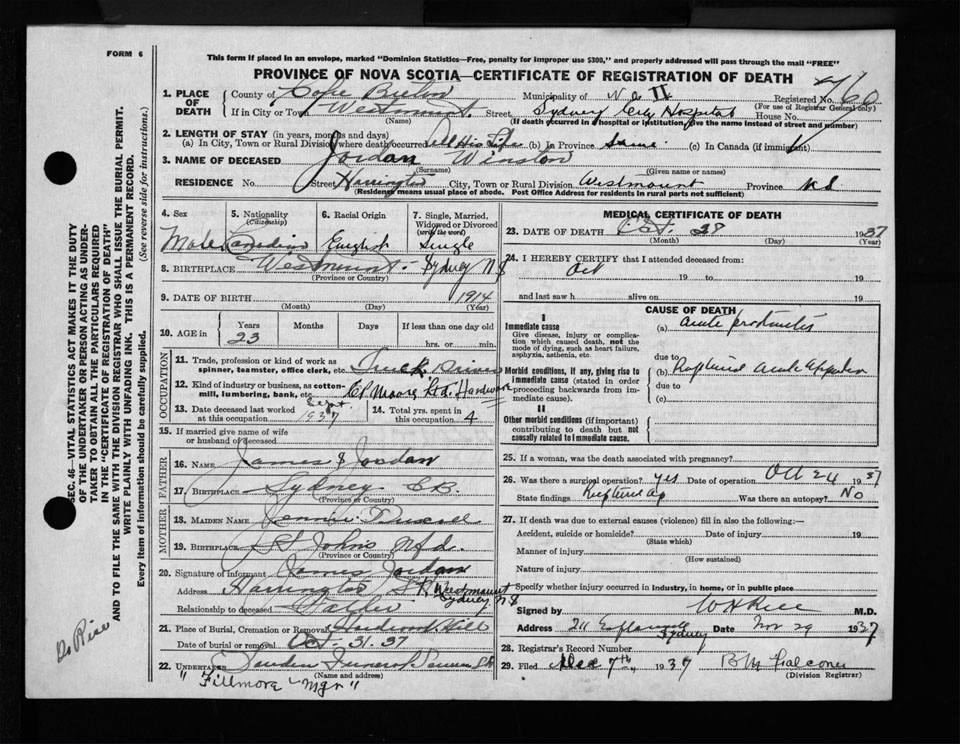 FORM 6
This form if placed in an envelope, marked "Dominion Statistics—Free, penalty for improper use $300," and properly addressed will pass through the mail "FREE"
PROVINCE OF NOVA SCOTIA—CERTIFICATE OF REGISTRATION OF DEATH
1. PLACE OF DEATH County of Cape Breton Municipality of Registered No. 760
(For use of Registrar General only)
If in City or Town Westmount. Street Sydney City Hospital House No.
(Name) (If death occurred in a hospital or institution, give the name instead of street and number)
2. LENGTH OF STAY (in years, months and days)
(a) In City, Town or Rural Division where death occurred All His Life (b) In Province Same. (c) In Canada (if immigrant)
3. NAME OF DECEASED Jordan Winston
(Surname) (Given name or names)
RESIDENCE No. Street Harrington City, Town or Rural Division Westmount Province N.S
(Residence means usual place of abode. Post Office Address for residents in rural parts not sufficient)
4. Sex Male
5. Nationality (Citizenship) Canadian
6. Racial Origin English
7. Single, Married, Widowed or Divorced (write the word) Single
8. BIRTHPLACE Westmount. Sydney N.S
(Province or Country)
9. DATE OF BIRTH 1914
(Month) (Day) (Year)
10. AGE in Years 23 Months Days If less than one day
hrs. or min.
OCCUPATION
11. Trade, profession or kind of work as spinner, teamster, office clerk, etc. Truck Driver
12. Kind of industry or business, as cotton-mill, lumbering, bank, etc. Moore Ltd. Hardware
13. Date deceased last worked at this occupation Sept. 1937
14. Total yrs. spent in this occupation 4
15. If married give name of wife or husband of deceased
FATHER
16. NAME James J Jordan
17. BIRTHPLACE Sydney C.B.
(Province or Country)
MOTHER
18. MAIDEN NAME
19. BIRTHPLACE St Johns Nfd.
(Province or Country)
20. Signature of informant James Jordan
Address Harrington St Westmount Sydney N.S
Relationship to deceased Father
21. Place of Burial, Cremation or Removal Hardwood Hill
Date of burial or removal Oct. 31. 37
22. UNDERTAKER
(Name and address)
" Fillmore - Mgr "
MEDICAL CERTIFICATE OF DEATH
23. DATE OF DEATH Oct. 28 1937
(Month) (Day) (Year)
24. I HEREBY CERTIFY that I attended deceased from:
Oct 19 to 19
and last saw h alive on 19
CAUSE OF DEATH
I
Immediate cause
Give disease, injury or complication which caused death, not the mode of dying, such as heart failure, asphyxia, asthenia, etc.
(a) acute peritonitis
due to
Morbid conditions, if any, giving rise to immediate cause (stated in order proceeding backwards from immediate cause).
(b) Ruptured Acute Appendix
due to
(c)
II
Other morbid conditions (if important) contributing to death but not causally related to immediate cause.
25. If a woman, was the death associated with pregnancy?
26. Was there a surgical operation? yes Date of operation Oct 24 1937
State findings Ruptured Ap Was there an autopsy? No
27. If death was due to external causes (violence) fill in also the following:—
Accident, suicide or homicide? Date of injury 19
(State which)
Manner of injury
(How sustained)
Nature of injury
Specify whether injury occurred in industry, in home, or in public place
Signed by W H Rice M.D.
Address 211 Esplanade Sydney Date Nov 29 1937
28. Registrar's Record Number
29. Filed Dec 7th, 1937 B M Falconer
(Division Registrar)
SEC. 46—VITAL STATISTICS ACT MAKES IT THE DUTY
OF THE UNDERTAKER OR PERSON ACTING AS UNDER-
TAKER TO OBTAIN ALL THE PARTICULARS REQUIRED
IN THE "CERTIFICATE OF REGISTRATION OF DEATH"
AND TO FILE THE SAME WITH THE DIVISION REGISTRAR WHO SHALL ISSUE THE BURIAL PERMIT.
WRITE PLAINLY WITH UNFADING INK. THIS IS A PERMANENT RECORD.
Every item of information should be carefully supplied.
(See reverse side for instructions.)
Dr Rice